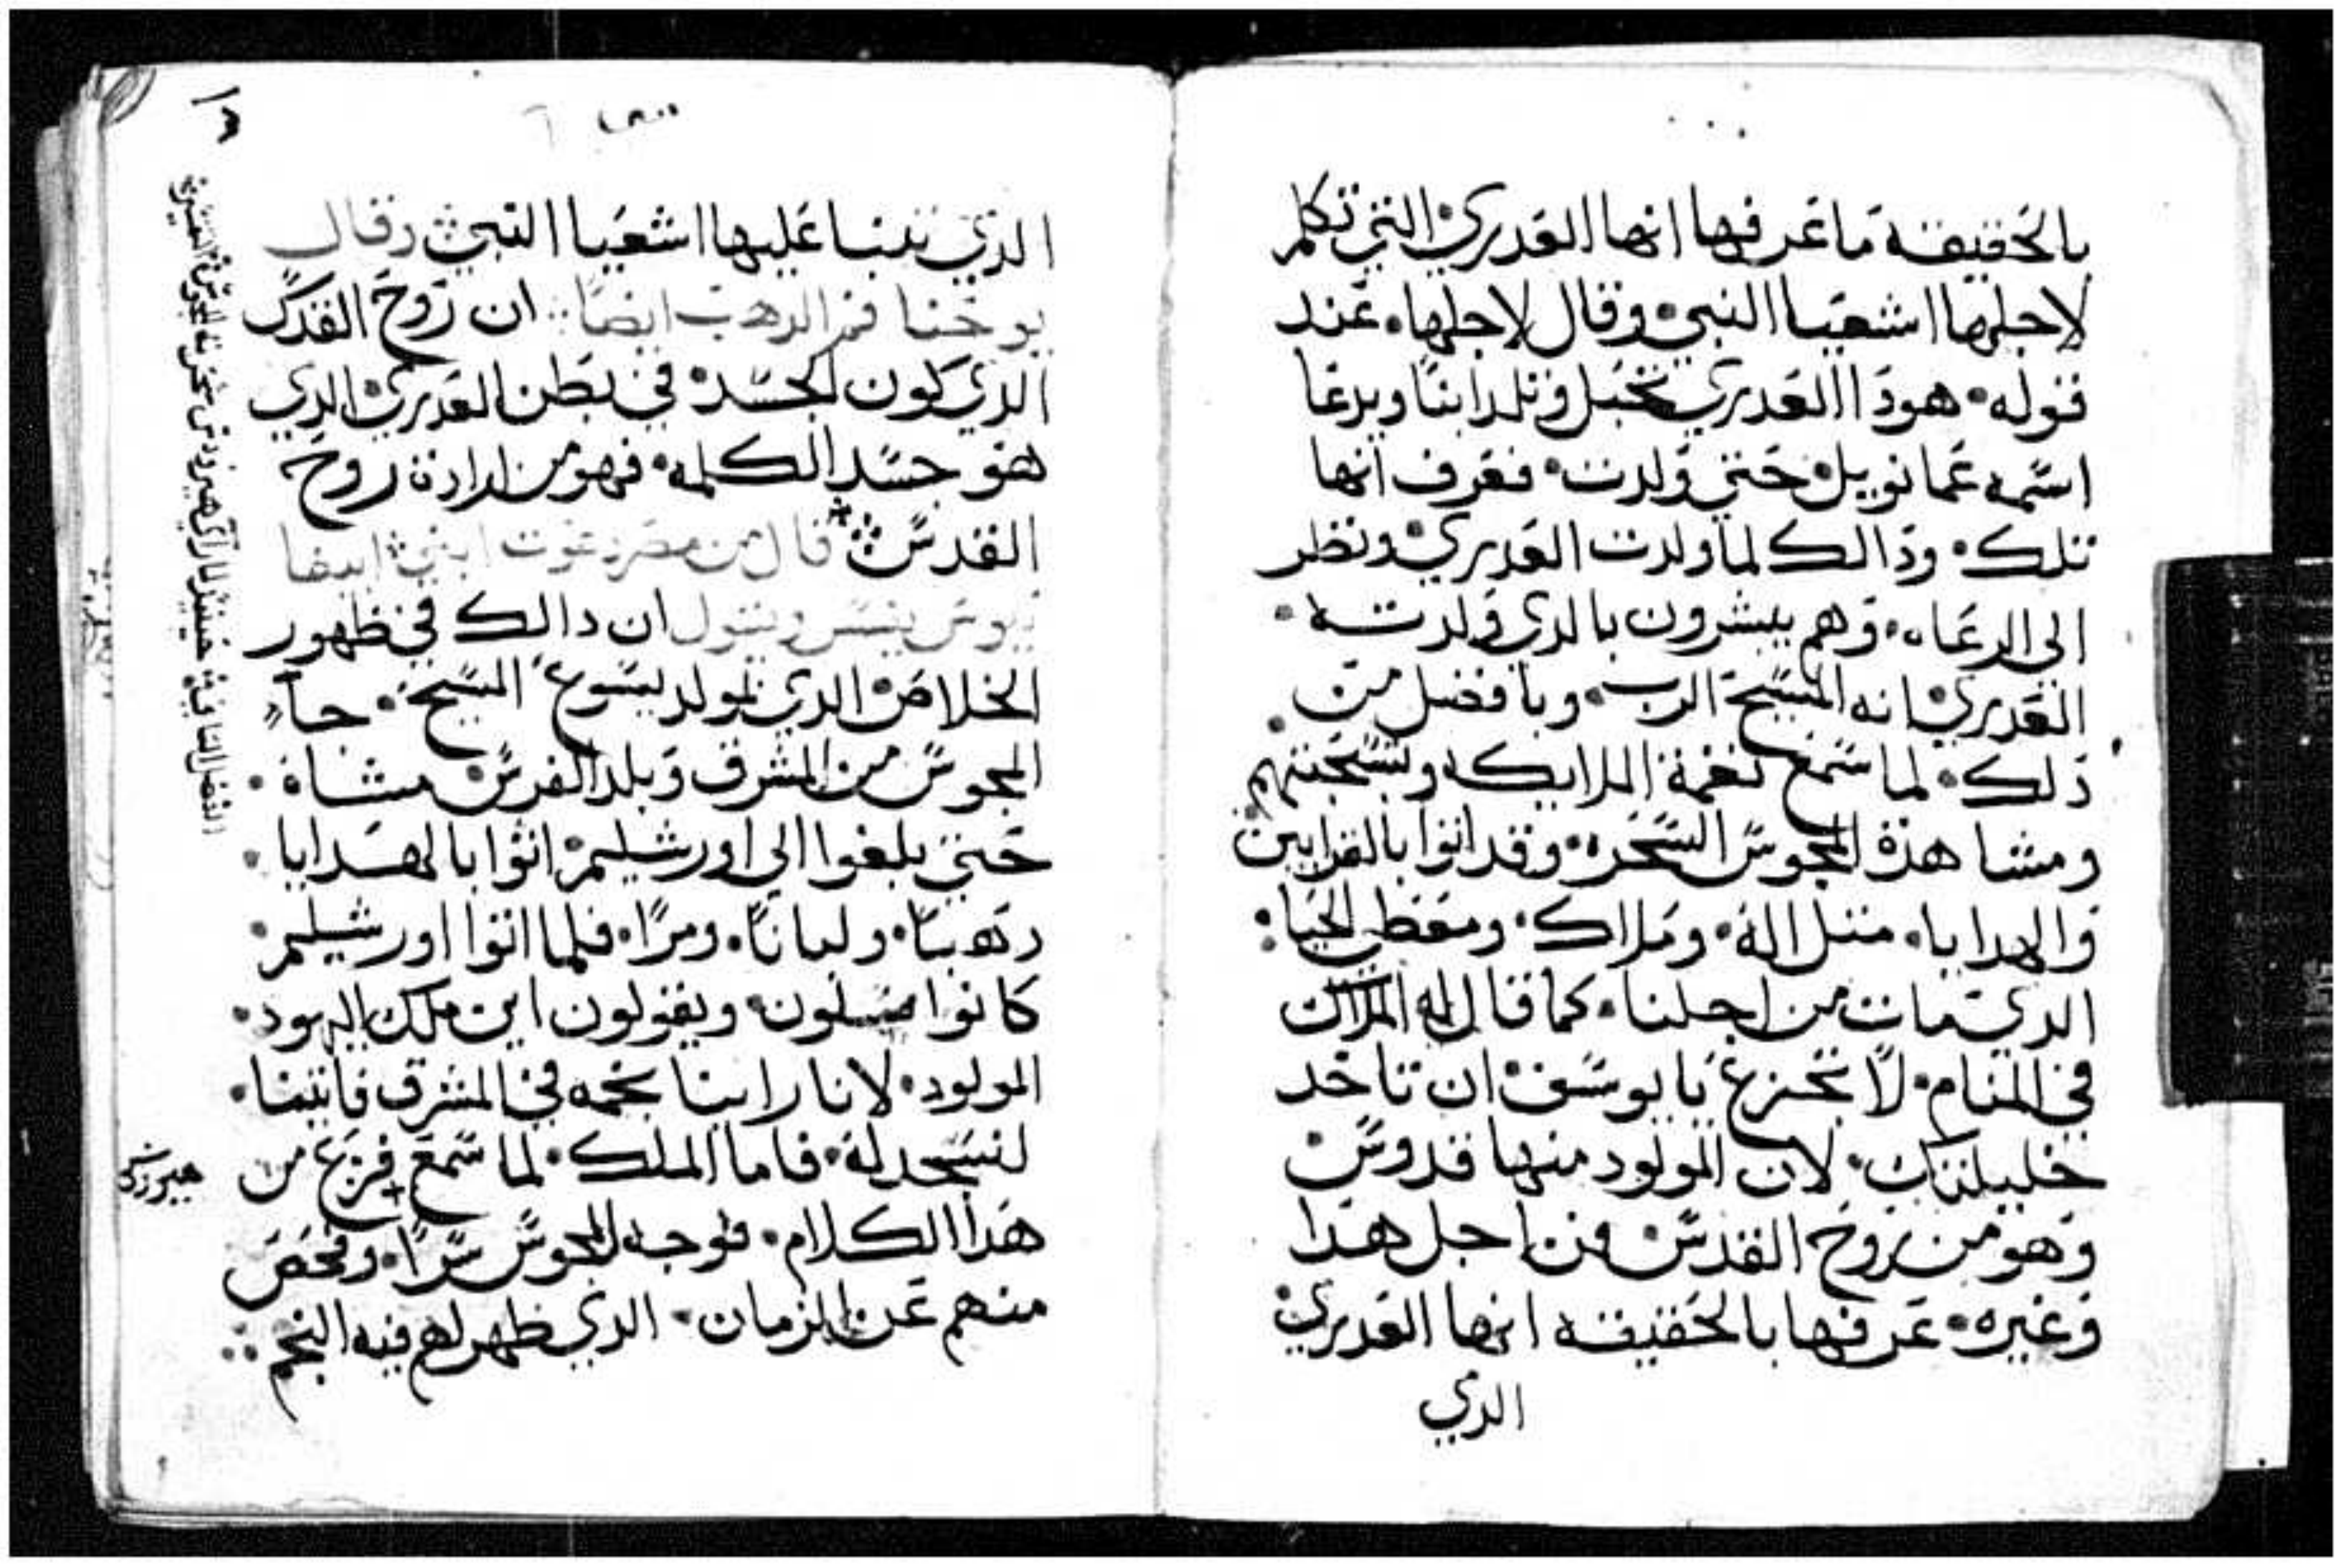 بالحقيقة ما عرفها انها العدري التي تكلم
لاجلها اشعيا النبي وقال لاجلها. عند
قوله. هودا العدري تحبل وتلد ابنًا ويدعا
اسمه عمانوييل حتي ولدت. فعرف انها
تلك. ودالك لما ولدت العدري ونظر
الي الرعاه. وهم يبشرون بالدي ولدته.
العدري انه المسيح الرب. وبافضل من
دلك. لما سمع نغمة الملايكه وتسبحتهم
ومشاهدة المجوس السحره. وقد اتوا بالقرابين
والهدايا. متل اله. وملاك. ومعطي الحيا:
الدي مات من اجلنا. كما قال له الملاك
في المنام. لا تجزع يا يوسف ان تاخد
خليلتك. لان المولود منها قدوس
وهو من روح القدس فمن اجل هدا
وغيره. عرفها بالحقيقه انها العدري
الدي
الدي تنبا عليها اشعيا النبي وقال
يوحنا فم الدهب ايضًا ان روح القدس
الدي كون الجسد في بطن العدري الدي
هو جسد الكلمه. فهو من ارادة روح
القدس قال من مصر دعوت ابني ابيفا
نيوس يفسر ويقول ان دالك في ظهور
الخلاص الدي لمولد يسوع المسيح. جاء
المجوس من المشرق وبلد الفرس مشاة.
حتي بلغوا الي اورشليم اتوا بالهدايا.
دهبًا. ولبانًا. ومرًا. فلما اتوا اورشليم
كانوا يسلون ويقولون اين ملك اليهود.
المولود. لانا راينا نجمه في المشرق فاتينا.
لنسجد له. فاما الملك. لما سمع فزع من
هيرودس
هدا الكلام. فوجه للمجوس سرًا. وفحص
منهم عن الزمان. الدي ظهر لهم فيه النجم